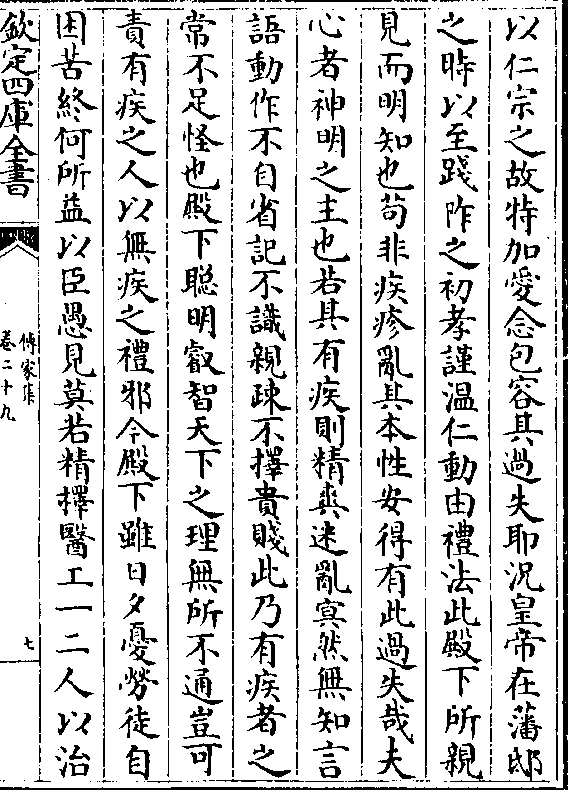 以仁宗之故特加愛念包容其過失耶况皇帝在藩邸
之時以至踐阼之初孝謹温仁動由禮法此殿下所親
見而明知也茍非疾疹亂其本性安得有此過失哉夫
心者神明之主也若其有疾則精爽迷亂㝠然無知言
語動作不自省記不識親疎不擇貴賤此乃有疾者之
常不足怪也殿下聰明叡智天下之理無所不通豈可
責有疾之人以無疾之禮邪今殿下雖日夕憂勞徒自
困苦終何所益以臣愚見莫若精擇醫工一二人以治
欽定四庫全書
傳家集
卷二十九
七